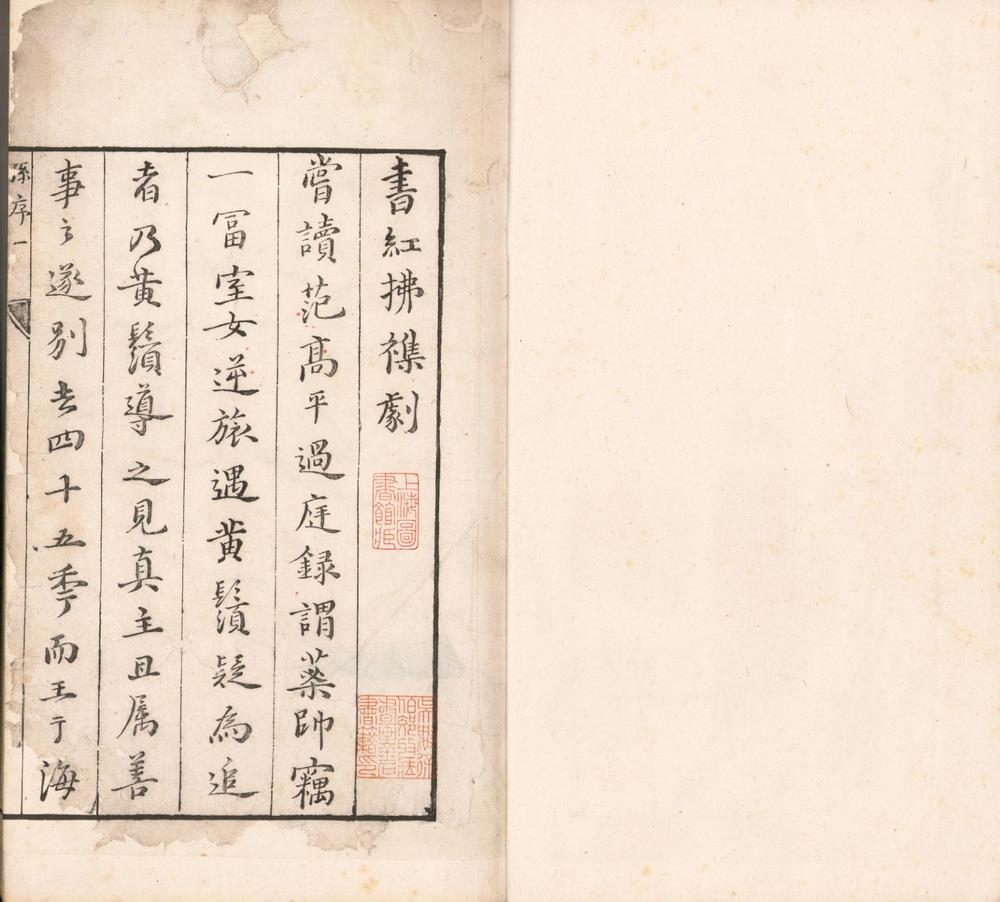 書紅拂襍劇
嘗讀范髙平過庭録謂藥師竊
一冨室女逆旅遇黄鬚疑為追
者乃黄鬚導之見真主且属善
事之遂别去四十五秊而王于海
孫序一
上海圖書館臧